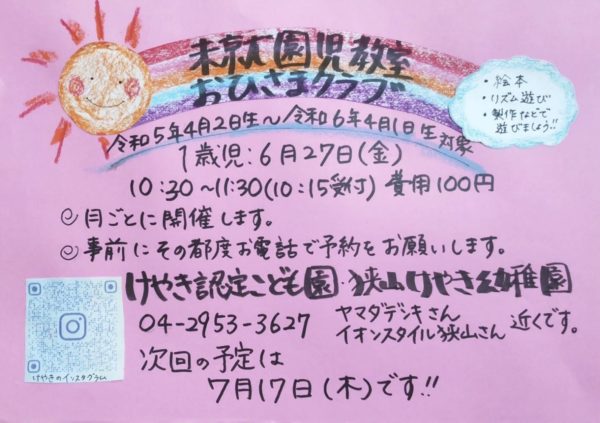 未就園児教室
おひさまクラブ
・絵本
・リズム遊び
・製作などで
遊びましょう!!
令和5年4月2日生〜令和6年4月1日生対象
1歳児:6月27日(金)
10:30〜11:30(10:15受付) 費用100円
◎月ごとに開催します。
◎事前にその都度お電話で予約をお願いします。
けやき認定こども園・狭山けやき幼稚園
04-2953-3627
ヤマダデンキさん
イオンスタイル狭山さん
近くです。
次回の予定は
7月17日(木)です!!
けやきのインスタグラム